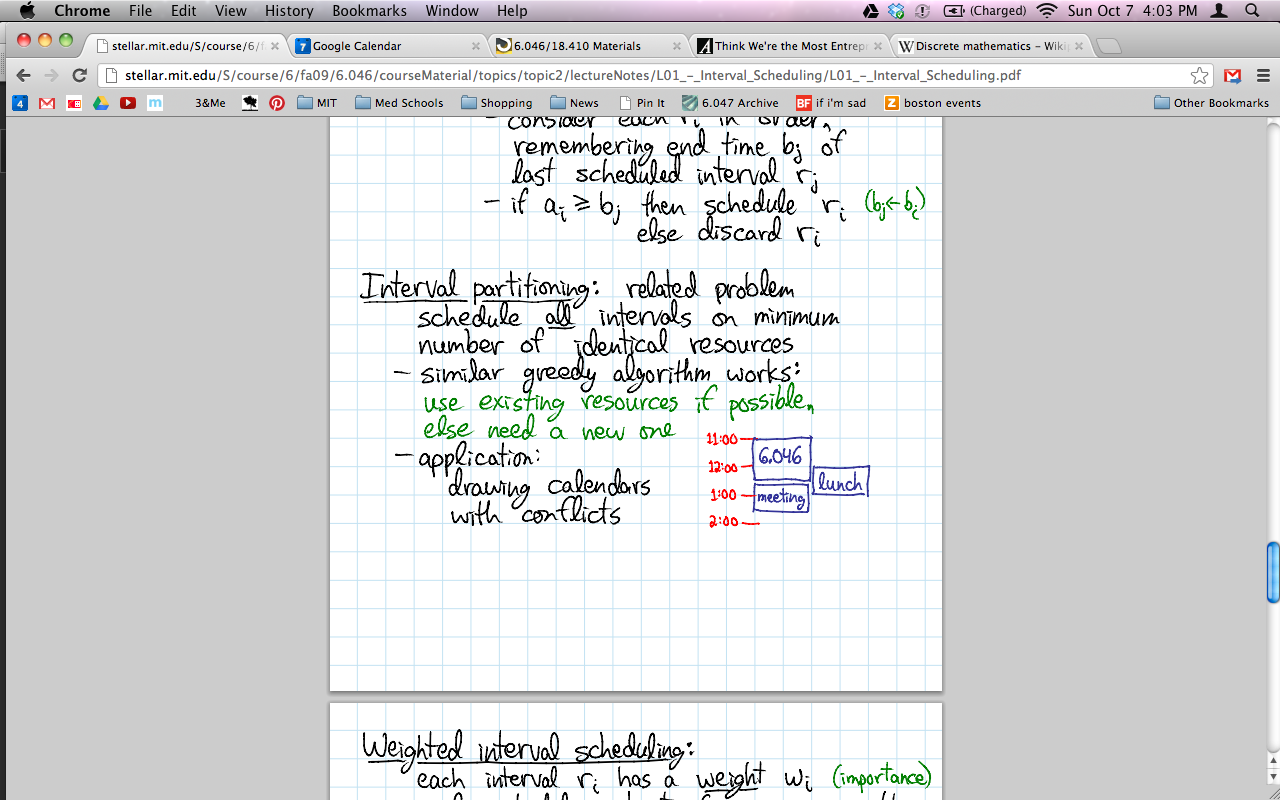 Chrome File Edit View History Bookmarks Window Help (Charged) Sun Oct 7 4:03 PM
stellar.mit.edu/S/course/6/f
7 Google Calendar
6.046/18.410 Materials
Think We're the Most Entrep
W Discrete mathematics – Wiki
stellar.mit.edu/S/course/6/fa09/6.046/courseMaterial/topics/topic2/lectureNotes/L01_-_Interval_Scheduling/L01_-_Interval_Scheduling.pdf
4 m 3&Me MIT Med Schools Shopping News Pin It 6.047 Archive BF if i'm sad Z boston events Other Bookmarks
- consider each ri in order,
remembering end time bj of
last scheduled interval rj
- if ai ≥ bj then schedule ri (bj←bi)
else discard ri
Interval partitioning: related problem
schedule all intervals on minimum
number of identical resources
- similar greedy algorithm works:
use existing resources if possible,
else need a new one
- application:
drawing calendars
with conflicts
11:00
12:00
1:00
2:00
6.046
lunch
meeting
Weighted interval scheduling:
each interval ri has a weight wi (importance)